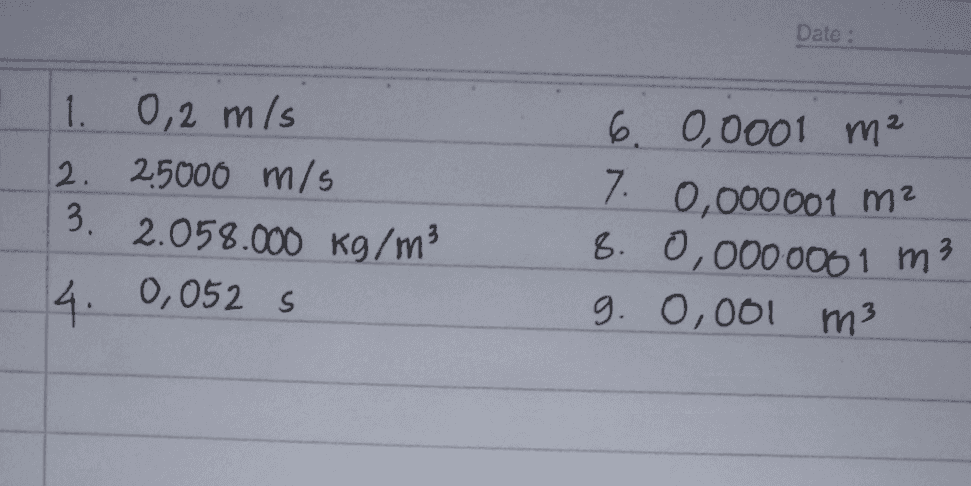 Date :
1. 0,2 m/s
2. 25000 m/s
3. 2.058.000 kg/m³
4. 0,052 s
6. 0,0001 m²
7. 0,000001 m²
8. 0,0000001 m³
9. 0,001 m³